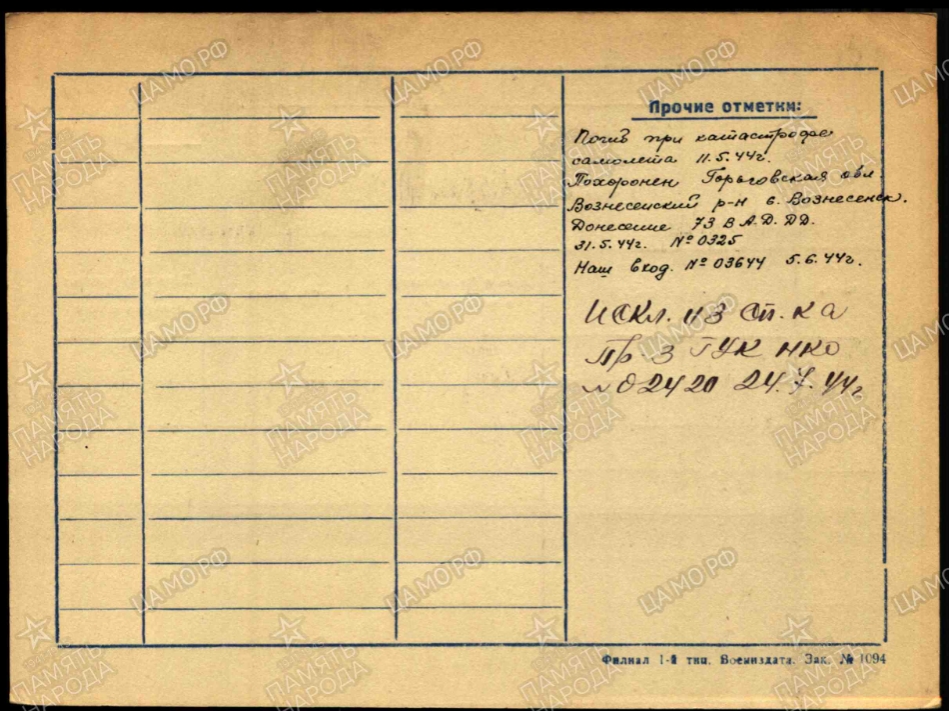 Прочие отметки:
Погиб при катастрофе
самолета 11.5.44г.
Похоронен Горьковская обл.
Вознесенский р-н с. Вознесенск.
Донесение 73 В А.Д. ДД.
31.5.44г. № 0325
Наш вход. № 03644 5.6.44г.
Искл. из сп. ка
Пр. 3 ГУК НКО
№ 02420 24.7.44г
Филиал 1-й тип. Воениздата. Зак. № 1094
ЦАМО.РФ
ПАМЯТЬ
НАРОДА